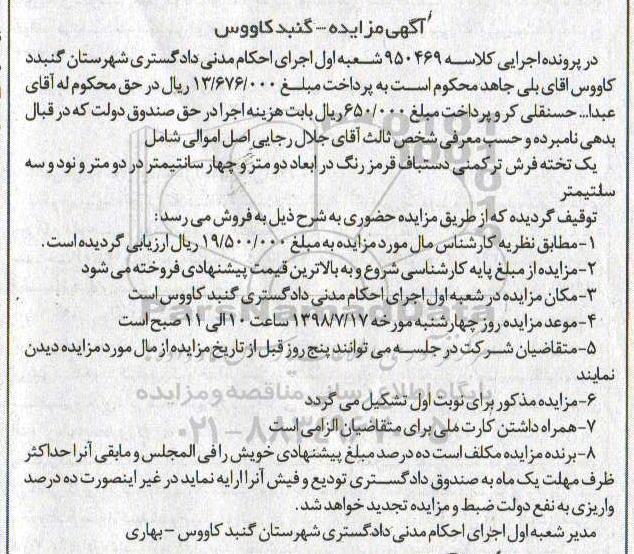 آگهی مزایده - گنبد کاووس
در پرونده اجرایی کلاسه ۹۵۰۴۶۹ شعبه اول اجرای احکام مدنی دادگستری شهرستان گنبدد
کاووس اقای بلی جاهد محکوم است به پرداخت مبلغ ۱۳/۶۷۶/۰۰۰ ریال در حق محکوم له آقای
عبدا... حسنقلی کر و پرداخت مبلغ ۶۵۰/۰۰۰ ریال بابت هزینه اجرا در حق صندوق دولت که در قبال
بدهی نامبرده و حسب معرفی شخص ثالث آقای جلال رجایی اصل اموالی شامل
یک تخته فرش ترکمنی دستباف قرمز رنگ در ابعاد دو متر و چهار سانتیمتر در دو متر و نود و سه
سانتیمتر
توقیف گردیده که از طریق مزایده حضوری به شرح ذیل به فروش می رسد:
۱-مطابق نظریه کارشناس مال مورد مزایده به مبلغ ۱۹/۵۰۰/۰۰۰ ریال ارزیابی گردیده است.
۲-مزایده از مبلغ پایه کارشناسی شروع و به بالاترین قیمت پیشنهادی فروخته می شود
۳-مکان مزایده در شعبه اول اجرای احکام مدنی دادگستری گنبد کاووس است
۴-موعد مزایده روز چهارشنبه مورخه ۱۳۹۸/۷/۱۷ ساعت ۱۰ الی ۱۱ صبح است
۵-متقاضیان شرکت در جلسه می توانند پنج روز قبل از تاریخ مزایده از مال مورد مزایده دیدن
نمایند
۶-مزایده مذکور برای نوبت اول تشکیل می گردد
۷-همراه داشتن کارت ملی برای متقاضیان الزامی است
۸-برنده مزایده مکلف است ده درصد مبلغ پیشنهادی خویش را فی المجلس و مابقی آنرا حداکثر
ظرف مهلت یک ماه به صندوق دادگستری تودیع و فیش آنرا ارایه نماید در غیر اینصورت ده درصد
واریزی به نفع دولت ضبط و مزایده تجدید خواهد شد.
مدیر شعبه اول اجرای احکام مدنی دادگستری شهرستان گنبد کاووس - بهاری
ParsNamadData
پایگاه اطلاع رسانی مناقصه و مزایده